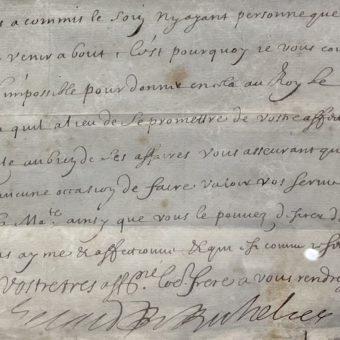 a commis le soin n'y ayant personne que
venir a bout, C'est pourquoy ie vous con
impossible pour donner en cela au Roy le
qu'il a lieu de se promettre de vostre affec
au bien de ses affaires vous asseurant qu
aucune occasion de faire valoir vos servi
Ma.te ainsy que vous le pouvez desirer d
ayme & affectionne & qui
Vostre tres aff.né Co^e frere a vous rendre
Card de Richelieu